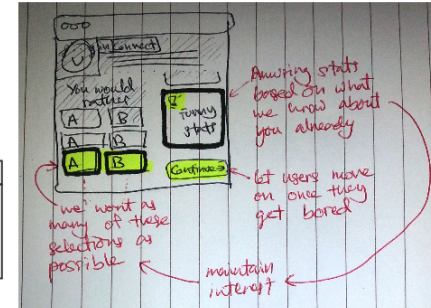 U
in Connect
You would
rather
A
B
A
B
A
B
funny
stats
Continue →
Amusing stats
based on what
we know about
you already
let users move
on once they
get bored
we want as
many of these
selections as
possible
maintain
interest